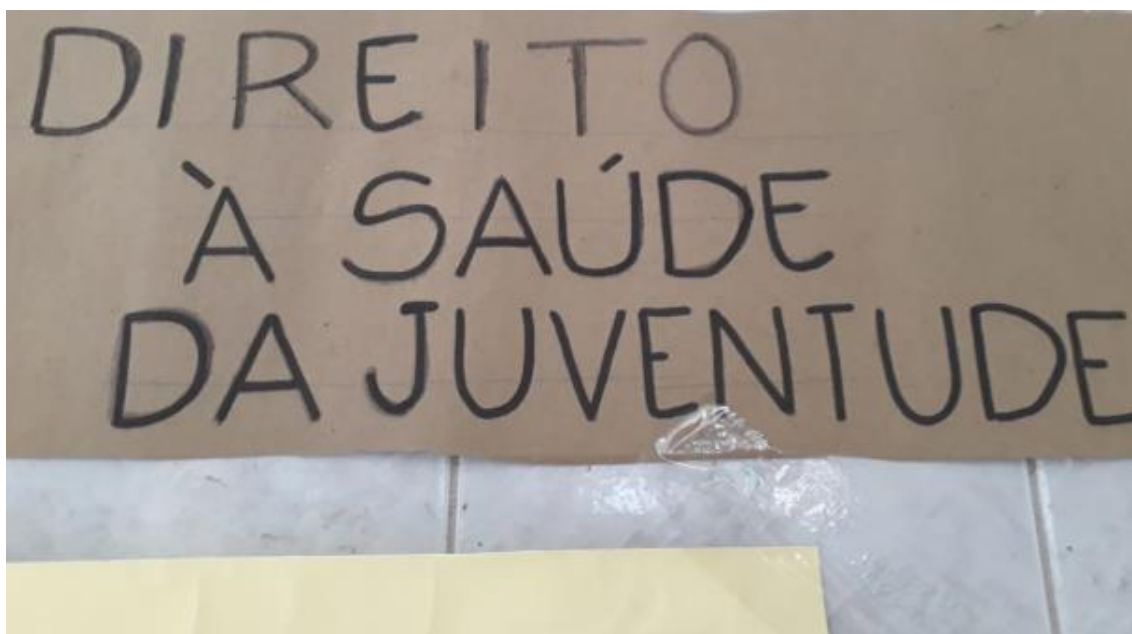 DIREITO
À SAÚDE
DA JUVENTUDE